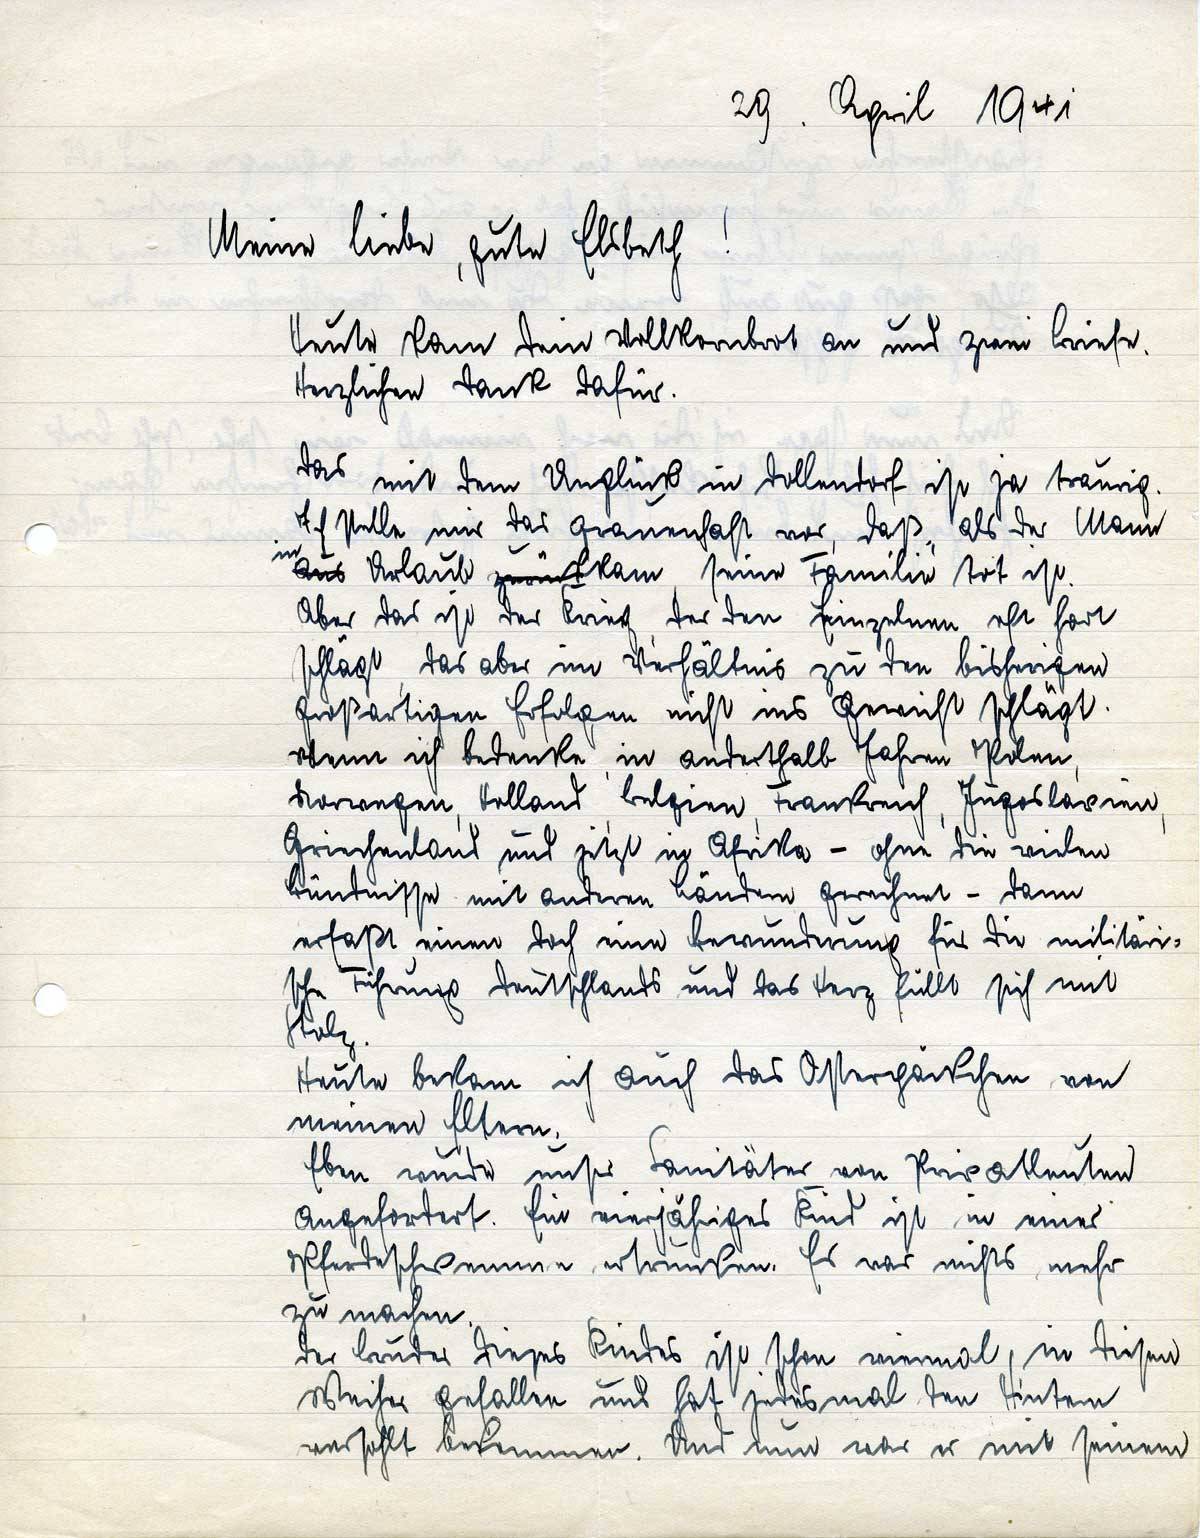 29. April 1941
Meine liebe, gute Elsbeth!
Heute kam Dein Vollkornbrot an und zwei Briefe.
Herzlichen Dank dafür.
Das mit dem Unglück in Dollendorf ist ja traurig.
Ich stelle mir das grauenhaft vor, daß, als der Mann
in
aus Urlaub zurückkam, seine Familie tot ist.
Aber das ist der Krieg, der den Einzelnen oft hart
schlägt, das aber im Verhältnis zu den bisherigen
großartigen Erfolgen nicht ins Gewicht schlägt.
Wenn ich bedenke, in anderthalb Jahren Polen,
Norwegen, Holland, Belgien, Frankreich, Jugoslavien,
Griechenland und jetzt in Afrika – ohne die vielen
Bündnisse mit anderen Ländern gerechnet – dann
erfaßt einen doch eine Bewunderung für die militäri=
sche Führung Deutschlands und das Herz füllt sich mit
Stolz.
Heute bekam ich auch das Osterpäckchen von
meinen Eltern.
Eben wurde unser Sanitäter von Privatleuten
angefordert. Ein vierjähriges Kind ist in einer
Pferdeschwemme ertrunken. Es war nichts mehr
zu machen.
Der Bruder dieses Kindes ist schon viermal, in diesen
Weiher gefallen und hat jedesmal den Hintern
versohlt bekommen. Und nun war er mit seinem